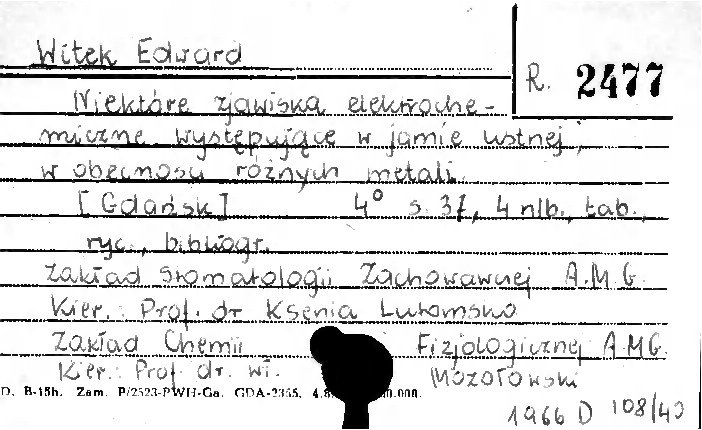 Witek Edward
R. 2477
Niektóre zjawiska elektroche-
miczne występujące w jamie ustnej,
w obecności różnych metali.
[Gdańsk] 4° s. 37, 4 nlb., tab.,
ryc., bibliogr.
Zakład Stomatologii Zachowawczej A.M.G.
Kier.: Prof. dr Ksenia Lutomska
Zakład Chemii Fizjologicznej A.M.G.
Kier.: Prof. dr. Wł. Mozołowski
D. B-15h. Zam. P/2523-PWH-Ga. GDA-2355.
1966 D 108/40